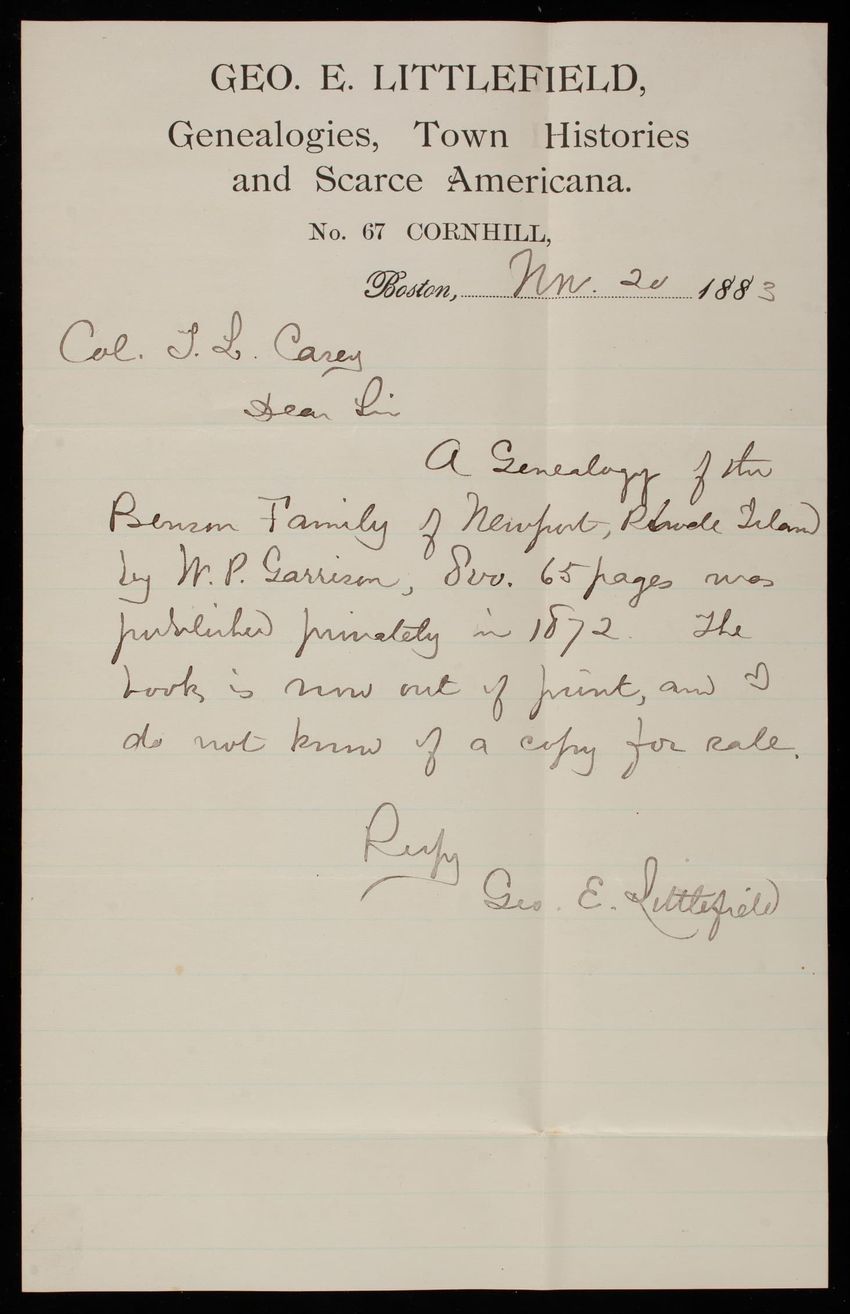 GEO. E. LITTLEFIELD,
Genealogies, Town Histories
and Scarce Americana.
No. 67 CORNHILL,
Boston, Nov. 20 1883
Col. T. L. Casey
Dear Sir
A Genealogy of the
Benson Family of Newport, Rhode Island
by W. P. Garrison, 8vo. 65 pages was
published privately in 1872. The
book is now out of print, and I
do not know of a copy for sale.
Respy
Geo. E. Littlefield